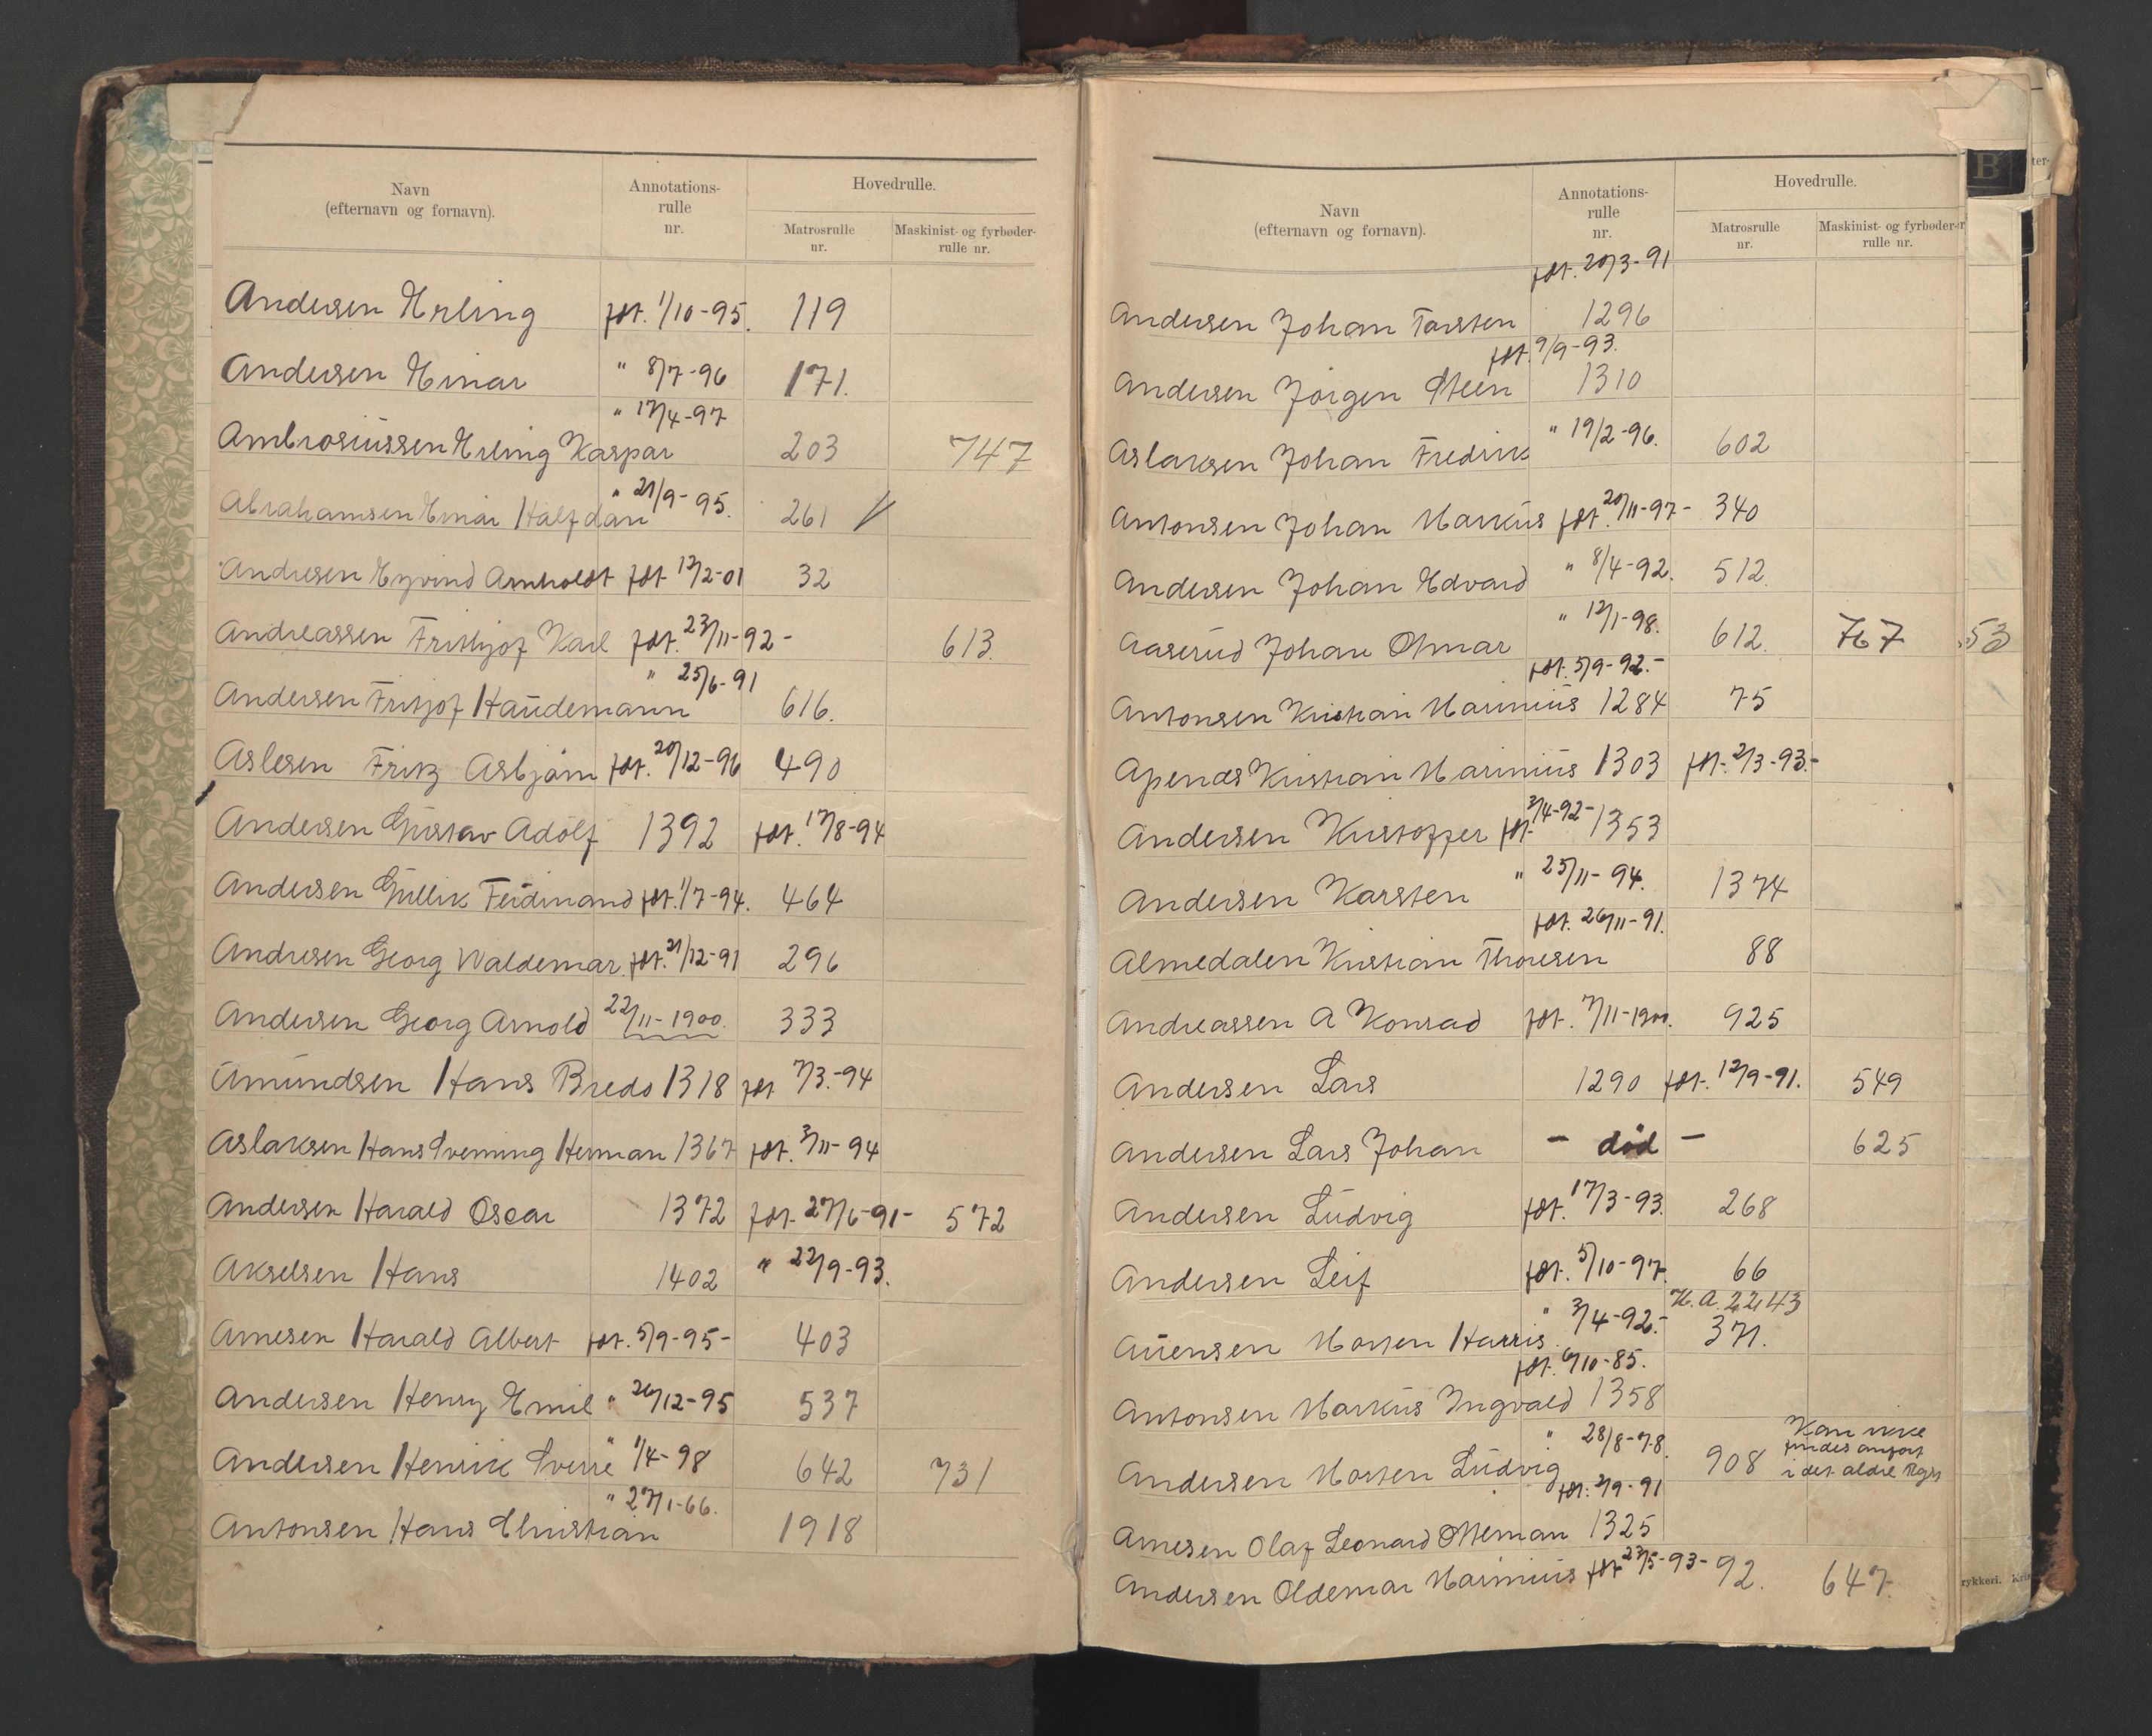 Navn
(efternavn og fornavn).
Annotations-
rulle
nr.
Hovedrulle.
Matrosrulle
nr.
Maskinist- og fyrbøder-
rulle nr.
Andersen Erling føt. 1/10-95. 119
Andersen Einar " 8/7-96 171.
" 17/4-97
Ambrosiussen Erling Kaspar 203 747
" 21/9-95.
Abrahamsen Einar Halfdan 261
Andresen Eyvind Arnholdt føt 12/2-01 32
Andreassen Frithjof Karl føt. 23/11-92- 613.
" 25/6-91
Andersen Fritjof Haudemann 616.
Aslesen Fritz Asbjørn føt. 20/12-96 490
Andersen Gustav Adolf 1392 føt. 17/8-94
Andersen Gullik Ferdinand føt. 1/7-94. 464
Andresen Georg Waldemar. føt. 21/12-91 296
Andersen Georg Arnold 22/11-1900. 333
Amundsen Hans Bredo 1318 føt 7/3.-94
Aslaksen Hans Svenning Herman 1367 føt. 3/11-94
Andersen Harald Oscar 1372 føt. 27/6-91- 572
Akselsen Hans 1402 " 22/9-93.
Arnesen Harald Albert føt. 5/9-95- 403
Andersen Henry Emil " 26/12-95 537
Andersen Henrik Sverre " 1/4-98 642 731
" 27/1-66.
Antonsen Hans Christian 1918
Navn
(efternavn og fornavn).
Annotations-
rulle
nr.
Hovedrulle.
Matrosrulle
nr.
Maskinist- og fyrbøder-
rulle nr.
B
føt. 20/3-91
Andersen Johan Torsten 1296
føt. 9/9-93.
Andersen Jørgen Steen 1310
Aslaksen Johan Fredrik " 19/2-96. 602
Antonsen Johan Markus føt. 20/11-97- 340
Andersen Johan Edvard " 8/4-92. 512.
" 12/1-98.
Aaserud Johan Omar 612. 767 53
føt. 5/9-92.-
Antonsen Kristian Marinius 1284 75
Apenæs Kristian Marinius 1303 føt. 2/3-93.-
Andersen Kristoffer føt. 3/4-92- 1353
Andersen Karsten " 25/11-94. 1374
føt. 26/11-91.
Almedalen Kristian Thoresen 88
Andreassen A Konrad føt. 7/11-1900. 925
Andersen Lars 1290 føt. 12/9-91. 549
Andersen Lars Johan - død - 625
Andersen Ludvig føt. 17/3-93. 268
Andersen Leif føt. 5/10-97. 66
H. A. 2243
Auensen Morten Harris. " 3/4-92.- 371.
føt. 6/10-85.
Antonsen Markus Ingvald 1358
" 28/8-78.
Andersen Morten Ludvig 908 Kan ikke
findes anført
i det ældre Rgs
føt. 2/9-91
Arnesen Olaf Leonard Otteman 1325
Andersen Oldemar Marinius føt 23/5-93- 92. 647.
rykkeri. Kris